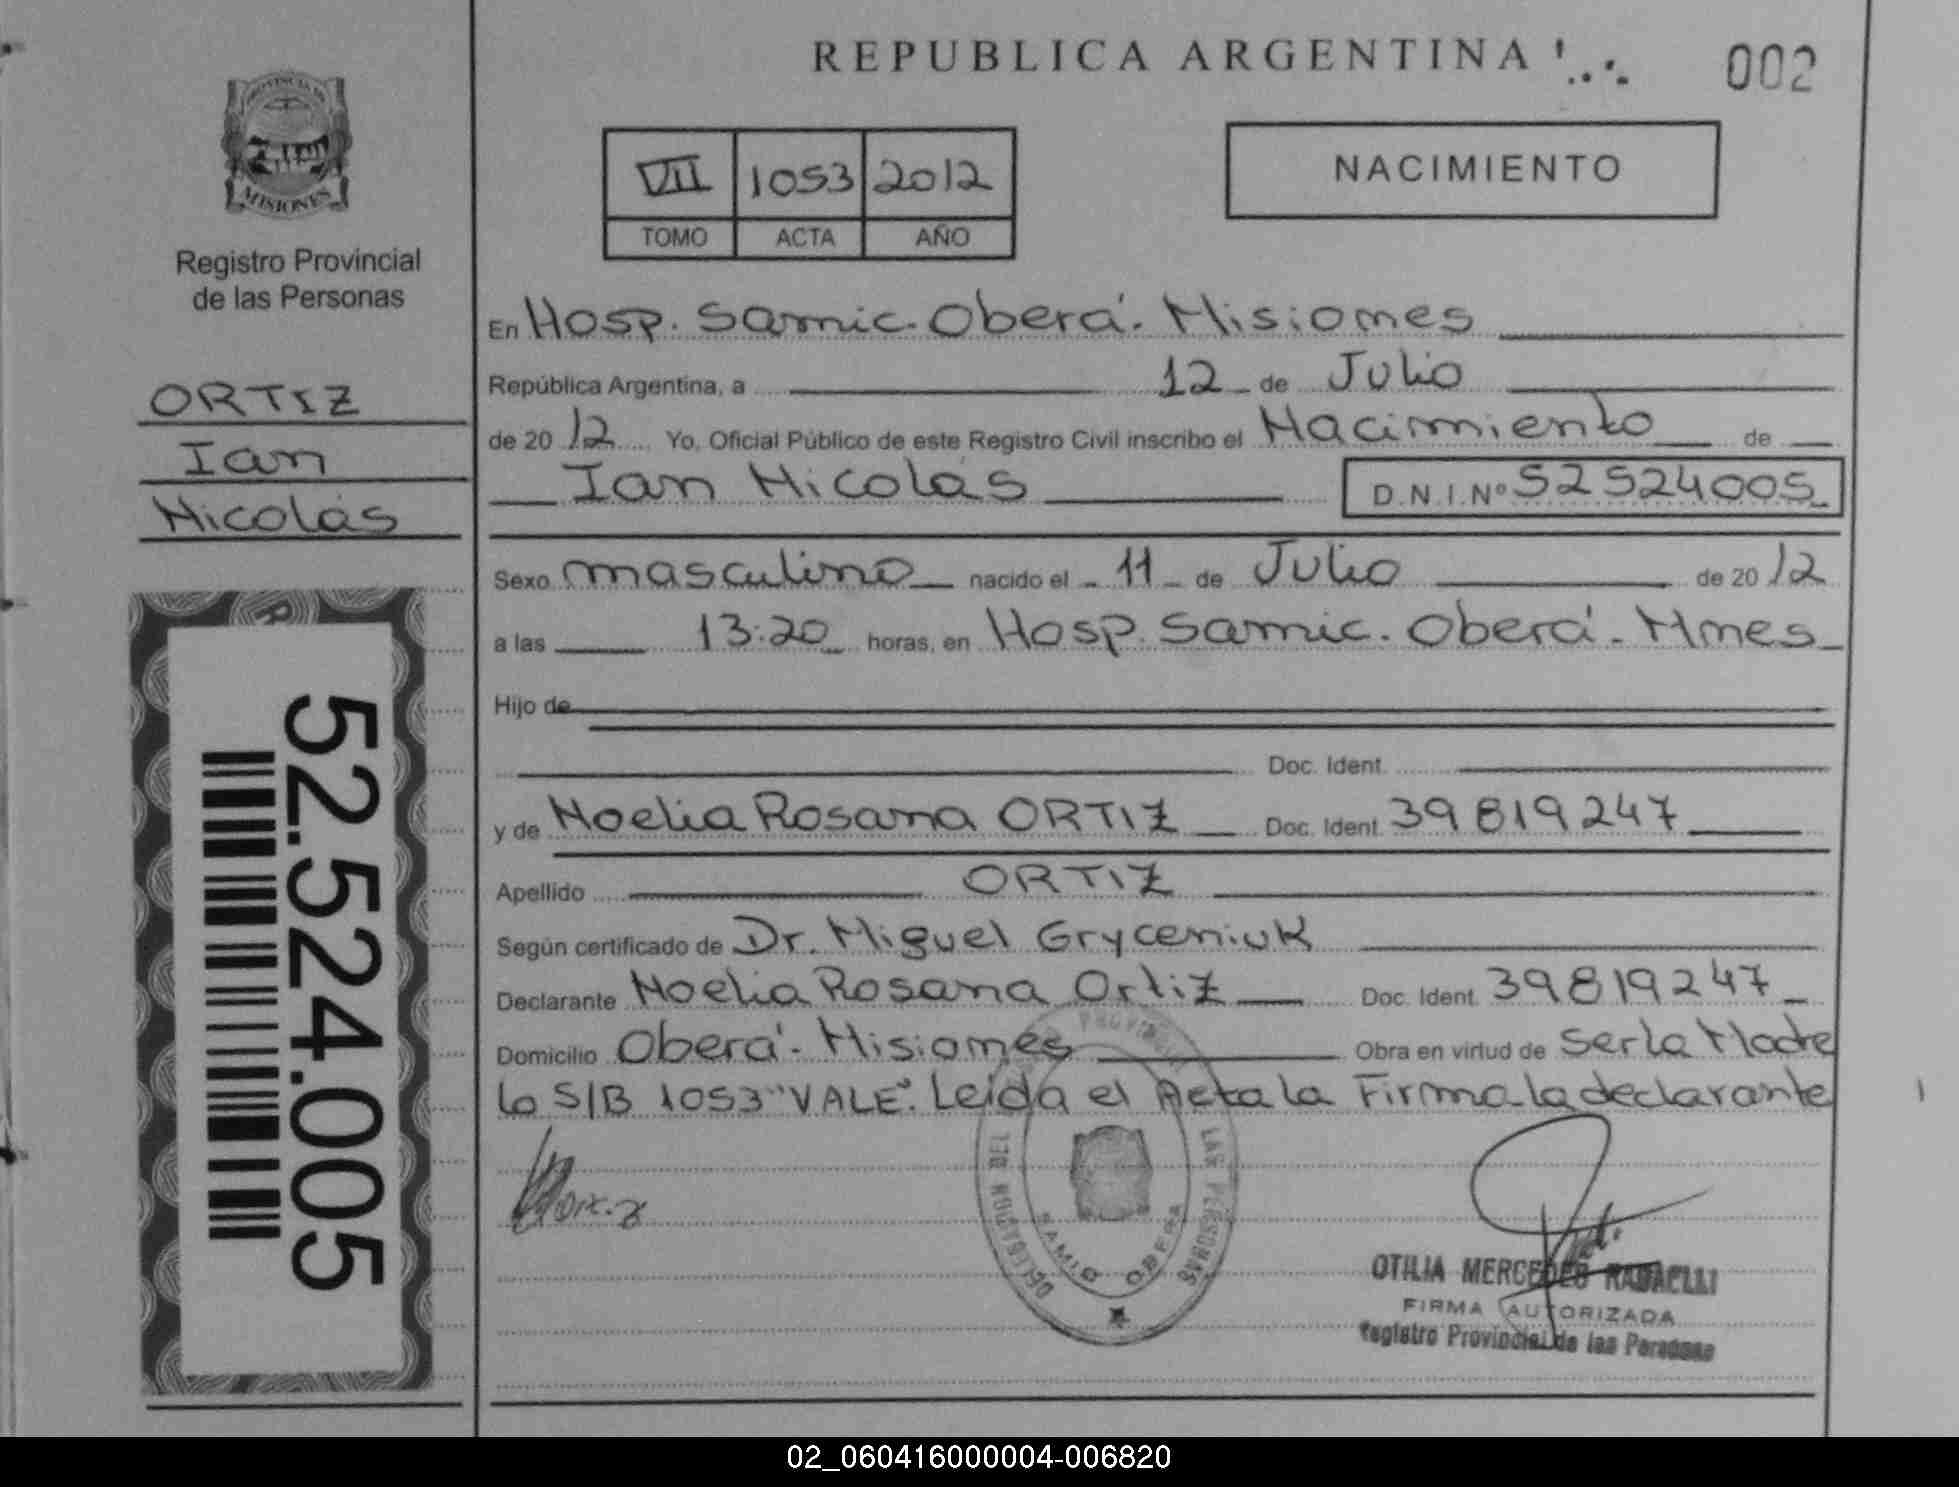 REPUBLICA ARGENTINA
002
PROVINCIA DE
MISIONES
Registro Provincial
de las Personas
VII 1053 2012
TOMO ACTA AÑO
NACIMIENTO
ORTIZ
Ian
Nicolás
52.524.005
En Hosp. Samic. Oberá. Misiones
República Argentina, a 12 de Julio
de 20 12 Yo, Oficial Público de este Registro Civil inscribo el Nacimiento de
Ian Nicolás D.N.I.Nº 52524005
Sexo masculino nacido el 11 de Julio de 20 12
a las 13:20 horas, en Hosp. Samic. Oberá. Mnes
Hijo de
Doc. Ident.
y de Noelia Rosana ORTIZ Doc. Ident. 39819247
Apellido ORTIZ
Según certificado de Dr. Miguel Gryceniuk
Declarante Noelia Rosana Ortiz Doc. Ident. 39819247
Domicilio Oberá. Misiones Obra en virtud de Ser la Madre
lo S/B 1053 "VALE". Leída el Acta la Firma la declarante
DELEGACION DEL PROVINCIAL LAS PERSONAS
SAMIC OBERA
OTILIA MERCEDES RADAELLI
FIRMA AUTORIZADA
Registro Provincial de las Personas
02_060416000004-006820